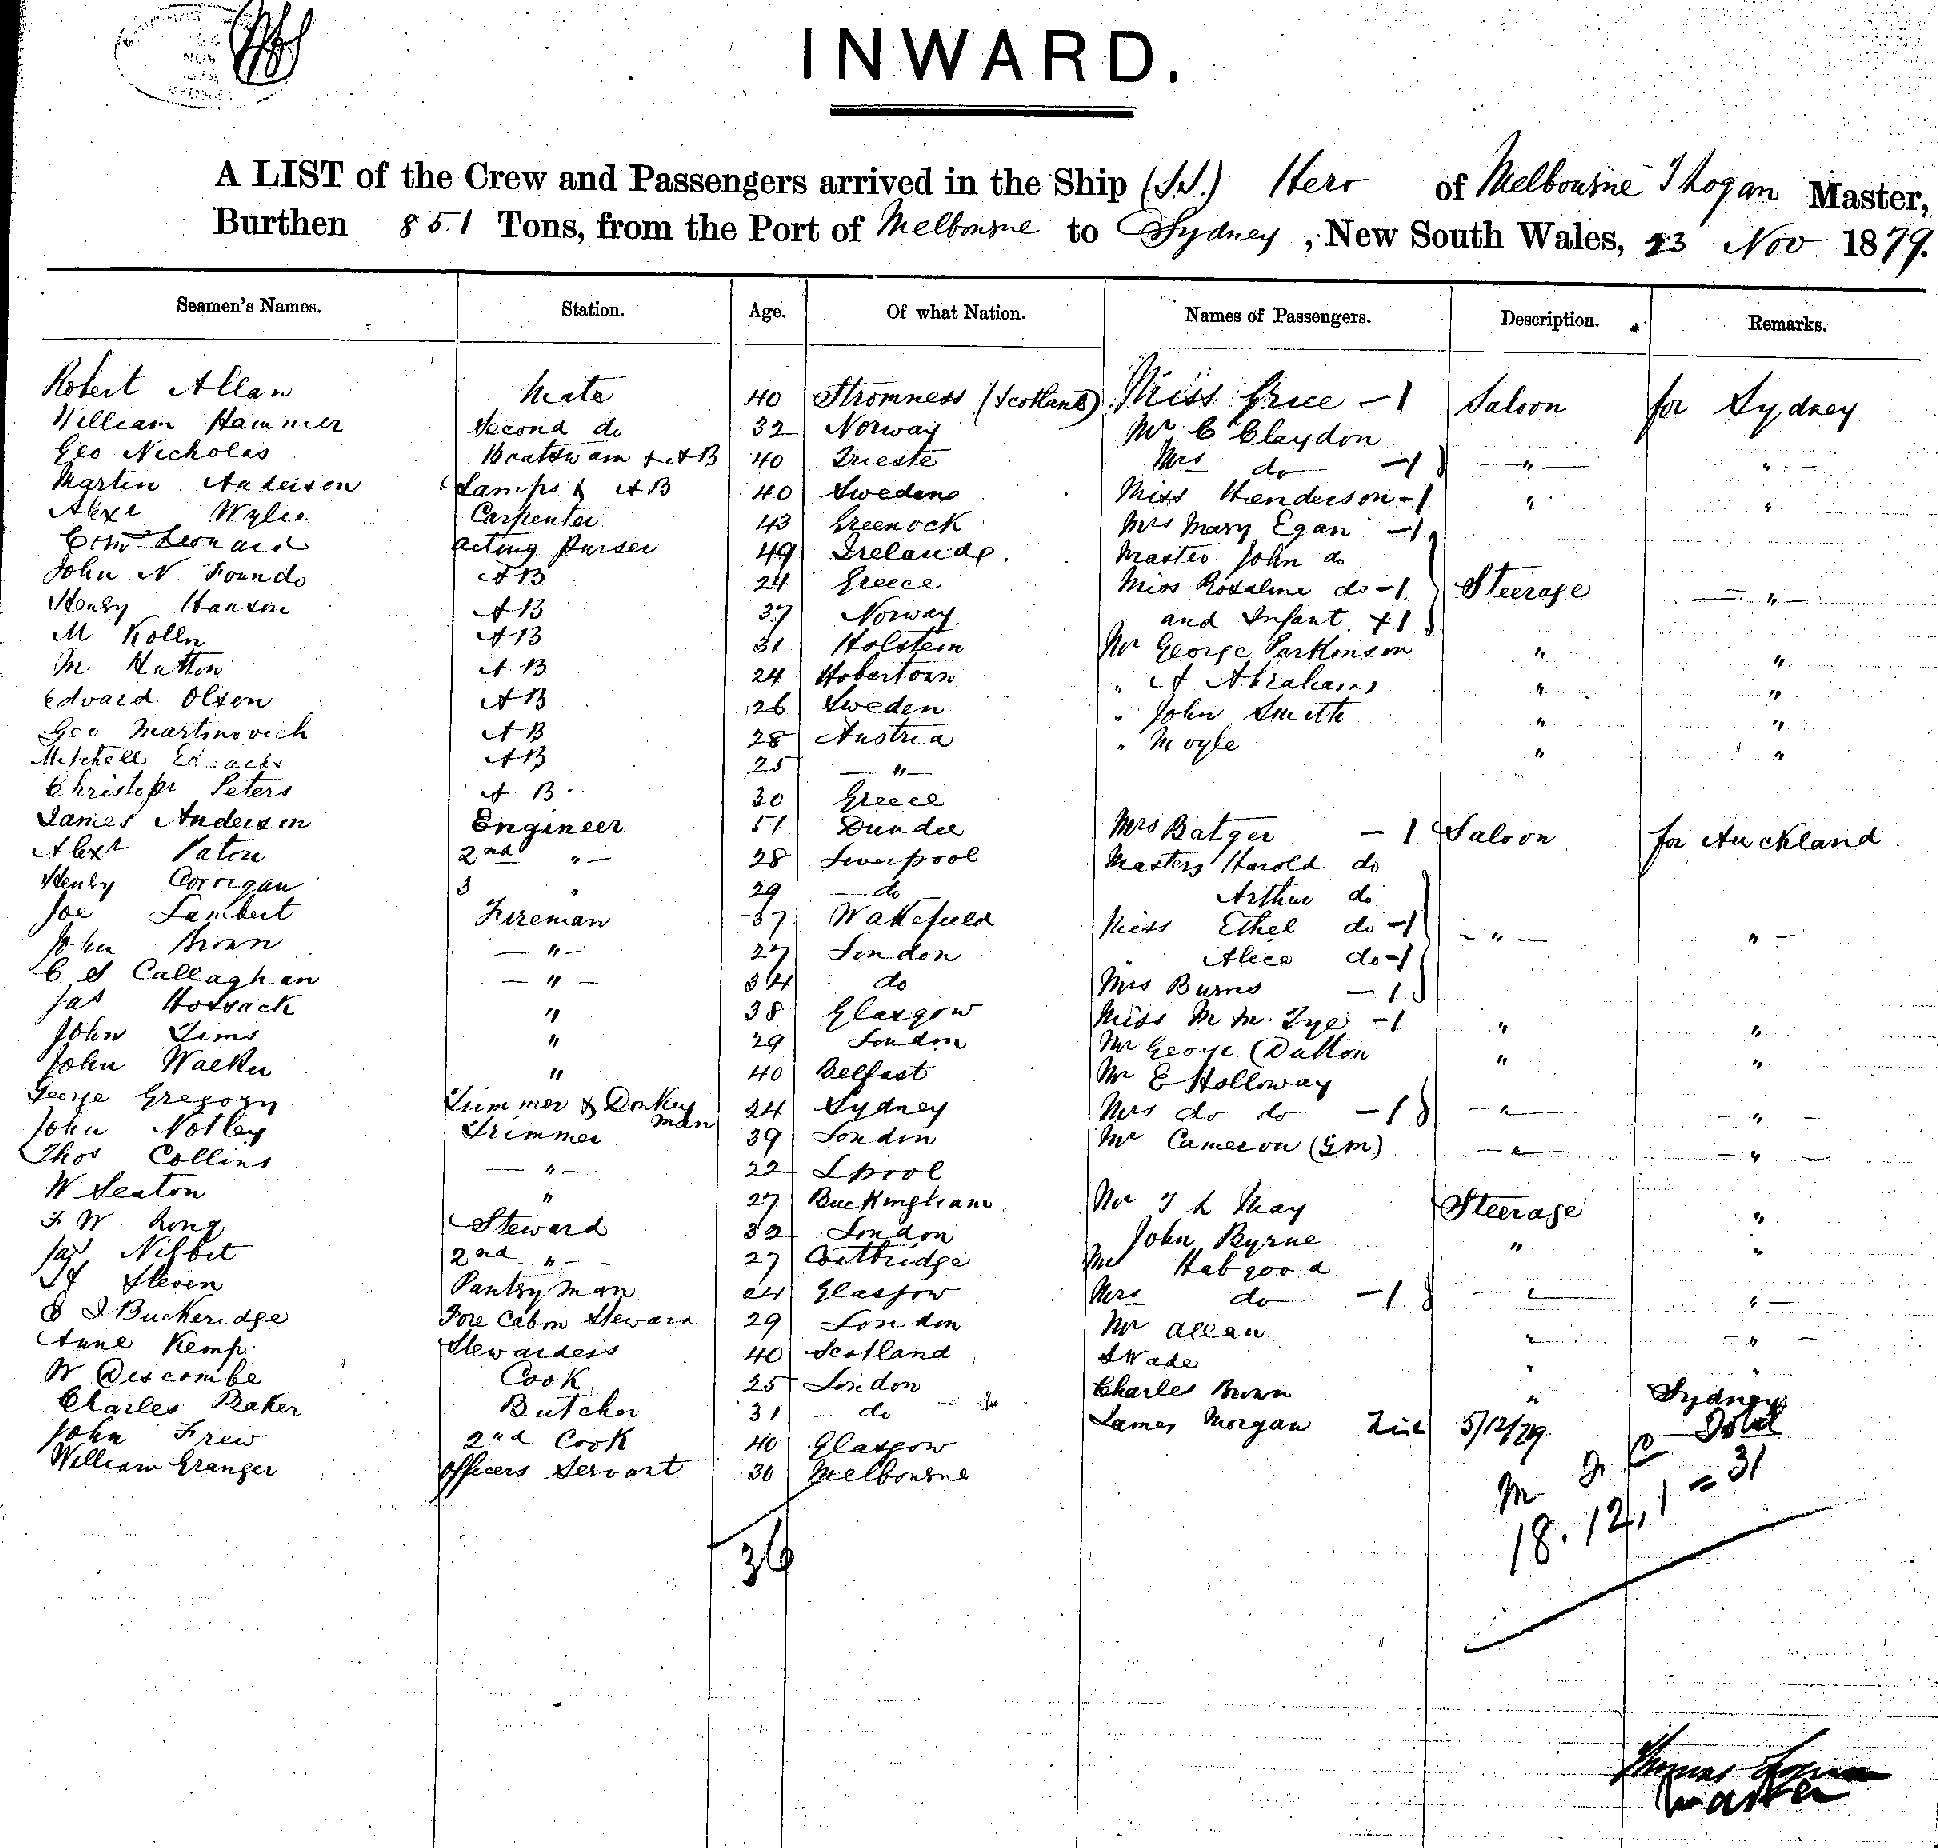 INWARD.
A LIST of the Crew and Passengers arrived in the Ship (S.S.) Hero of Melbourne T Logan Master,
Burthen 851 Tons, from the Port of Melbourne to Sydney, New South Wales, 23 Nov 1879.
Seamen's Names. Station. Age. Of what Nation. Names of Passengers. Description. Remarks.
Robert Allan Mate 40 Stromness (Scotland) Miss Grice -1 Saloon for Sydney
William Hammer Second do 32 Norway Mr C Claydon
Geo Nicholas Boatswain & AB 40 Trieste Mrs do -1 } " "
Martin Anderson Lamps & AB 40 Sweden Miss Henderson -1 " "
Alexr Wylie Carpenter 43 Greenock Mrs Mary Egan -1
Leonard Acting Purser 49 Ireland Master John do
John N Foundo AB 24 Greece Miss Rosaline do -1 Steerage "
Henry Hanson AB 37 Norway and Infant +1
M Kolln AB 31 Holstein Mr George Parkinson " "
M Hutton AB 24 Hobertown " A Abrahams " "
Edward Olsen AB 26 Sweden " John Smith " "
Geo Martinovich AB 28 Austria " Moyle " "
Mitchell AB 25 "
Christopr Peters AB 30 Greece
James Anderson Engineer 51 Dundee Mrs Batger -1 Saloon for Auckland
Alexr Paton 2nd " 28 Liverpool Masters Harold do
Henry Corrigan 3 " 29 do Arthur do
Joe Lambert Fireman 37 Wakefield Miss Ethel do -1 " "
John Brown " 27 London Alice do -1
C S Callaghan " 34 do Mrs Burns -1
Jas Hossack " 38 Glasgow Miss M M Tye -1 " "
John Sims " 29 London Mr George Dutton " "
John Walker " 40 Belfast Mr E Holloway
George Gregory Trimmer & Donkey man 24 Sydney Mrs do do -1 } " "
John Notley Trimmer 39 London Mr Cameron (GM) " "
Thos Collins " 22 Lpool
W Seaton " 27 Buckingham Mr T L May Steerage "
F W Long Steward 32 London John Byrne " "
Jas Nisbit 2nd " 27 Coatbridge Mr Habgood
Steven Pantryman 24 Glasgow Mrs do -1 } " "
E J Buckeridge Fore Cabin Steward 29 London Mr Allan " "
Anne Kemp Stewardess 40 Scotland S Wade " "
W Discombe Cook 25 London Charles Brown " Sydney
Charles Baker Butcher 31 do James Morgan 5/12/79
John Frew 2nd Cook 40 Glasgow
William Granger Officers Servant 30 Melbourne
M F C Total
18. 12, 1 = 31
36
Thomas Logan
Master